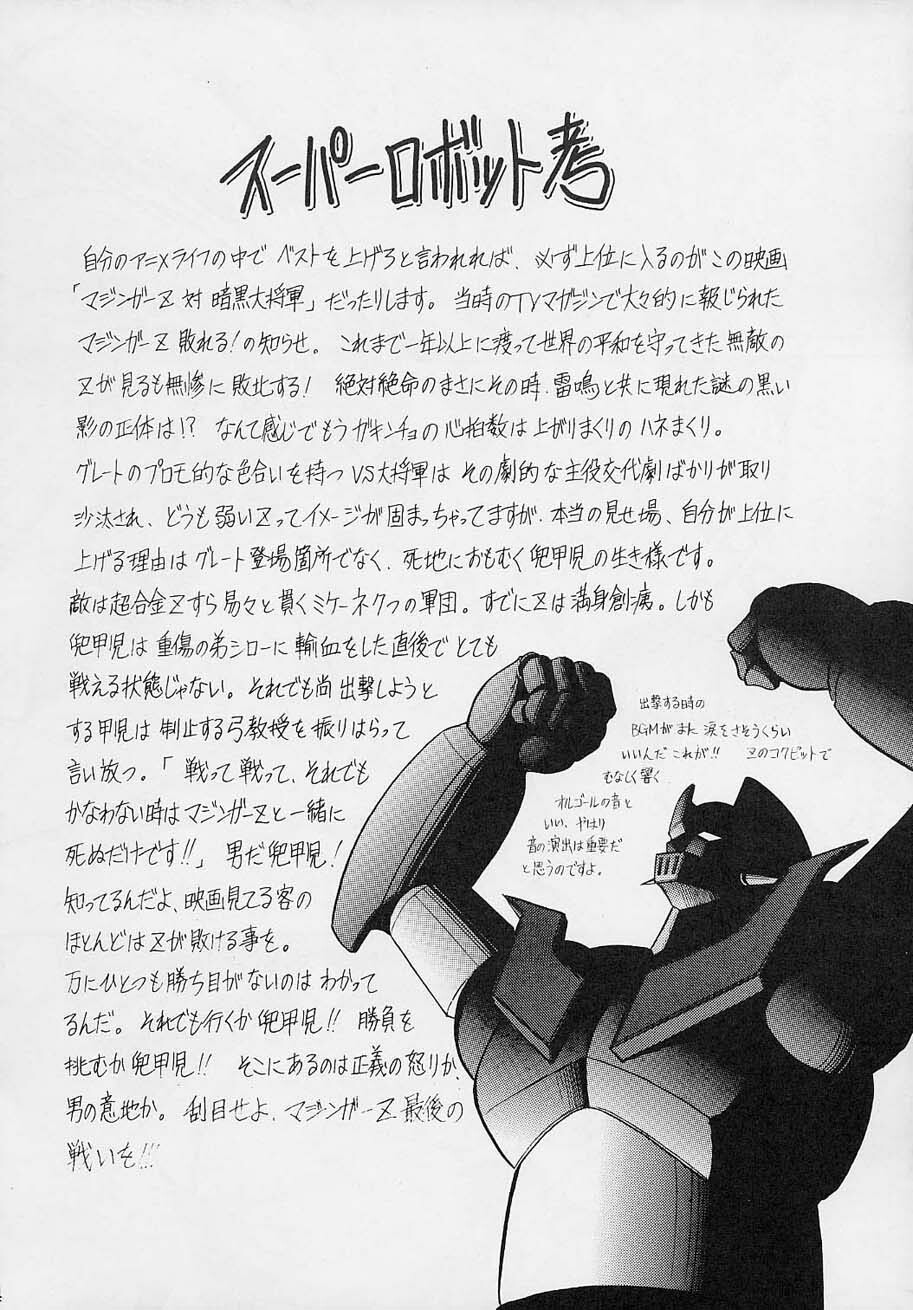 スーパーロボット考
自分のアニメライフの中で ベストを上げろと言われれば、必ず上位に入るのがこの映画
「マジンガーZ 対 暗黒大将軍」だったりします。 当時のTVマガジンで大々的に報じられた
マジンガーZ 敗れる!の知らせ。 これまで一年以上に渡って世界の平和を守ってきた無敵の
Zが見るも無惨に敗北する! 絶対絶命のまさにその時、雷鳴と共に現れた謎の黒い
影の正体は!? なんて感じでもうガキンチョの心拍数は上がりまくりのハネまくり。
グレートのプロモ的な色合いを持つ VS大将軍は その劇的な主役交代劇ばかりが取り
沙汰され、どうも弱いZってイメージが固まっちゃってますが、本当の見せ場、自分が上位に
上げる理由はグレート登場箇所でなく、死地におもむく兜甲児の生き様です。
敵は超合金Zすら易々と貫くミケーネ7つの軍団。すでにZは満身創痍。しかも
兜甲児は 重傷の弟シローに輸血をした直後でとても
戦える状態じゃない。それでも尚 出撃しようと
する甲児は 制止する弓教授を振りはらって
言い放つ。「戦って戦って、それでも
かなわない時はマジンガーZと一緒に
死ぬだけです!!」男だ兜甲児!
知ってるんだよ、映画見てる客の
ほとんどはZが敗ける事を。
万にひとつも勝ち目がないのは わかって
るんだ。それでも行くか兜甲児!! 勝負を
挑むか兜甲児!! そこにあるのは正義の怒りか、
男の意地か。 刮目せよ、マジンガーZ 最後の
戦いを!!!
出撃する時の
BGMがまた 涙をさそうくらい
いいんだ これが!! Zのコクピットで
むなしく響く
オルゴールの音と
いい、やはり
音の演出は重要だ
と思うのですよ。